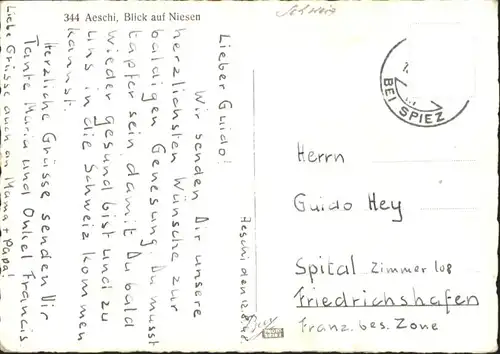 344 Aeschi, Blick auf Niesen
Schweiz
BEI SPIEZ
Aeschi, den 12.8.48
Lieber Guido!
Wir senden Dir unsere
herzlichsten Wünsche zur
baldigen Genesung. Du musst
tapfer sein, damit Du bald
wieder gesund bist und zu
uns in die Schweiz kommen
kannst.
Herzliche Grüsse senden Dir
Tante Maria und Onkel Francis.
Liebe Grüsse auch an Mama + Papa!
Herrn
Guido Hey
Spital Zimmer 108
Friedrichshafen
Franz. bes. Zone